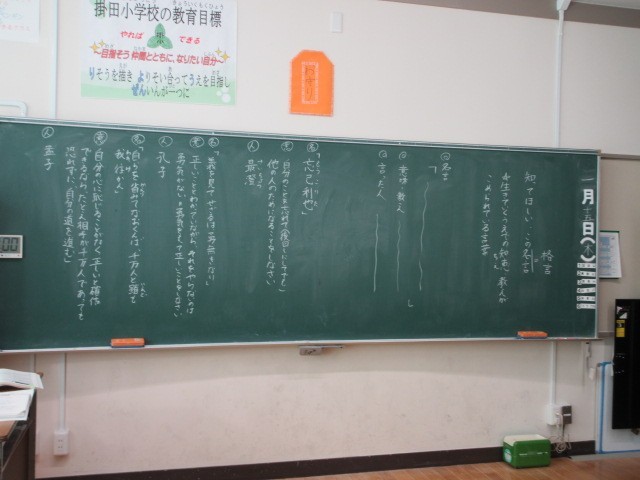 掛田小学校の教育目標
やれば できる
～目指そう 仲間とともに、なりたい自分～
りそうを描き よりそい合ってうえを目指し
ぜんいんが一つに
一月
日(木)
格言
知てほしい この名言
生きていく上での知恵、教人が
こめられている言葉
名言
意味・教え
言った人
「忘己利也」
自分のことを忘れて後回しにしてでも
他の人のためになることをしなさい
最澄
義を見てせざるは勇なきなり
正しいことわかっていながら、それをやらないのは
勇気がない
孔子
自らを省みてなおくんば、千万人と雖も
我ゆかん
自分の心に恥じることがなく、正しいと確信
できるなら、たとえ相手が千万人であっても
恐れずに自分の道を進む」
孟子